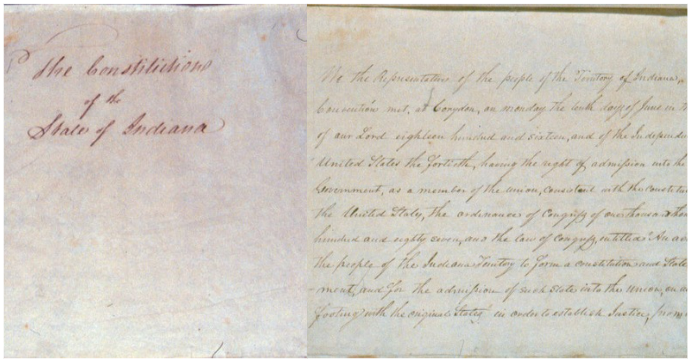 The Constitution
of the
State of Indiana
We the Representatives of the people of the Territory of Indiana, in
Convention met, at Corydon, on monday the tenth day of June in
of our Lord eighteen hundred and sixteen, and of the Independ
United States the fortieth, having the right of admission into the
Government, as a member of the union, consistent with the constitu
the United States, the ordinance of Congress of one thousand
hundred and eighty seven, and the law of Congress, entitled "An act
the people of the Indiana Territory to form a constitution and State
ment, and for the admission of such state into the union, on an
footing with the original States" in order to establish Justice,